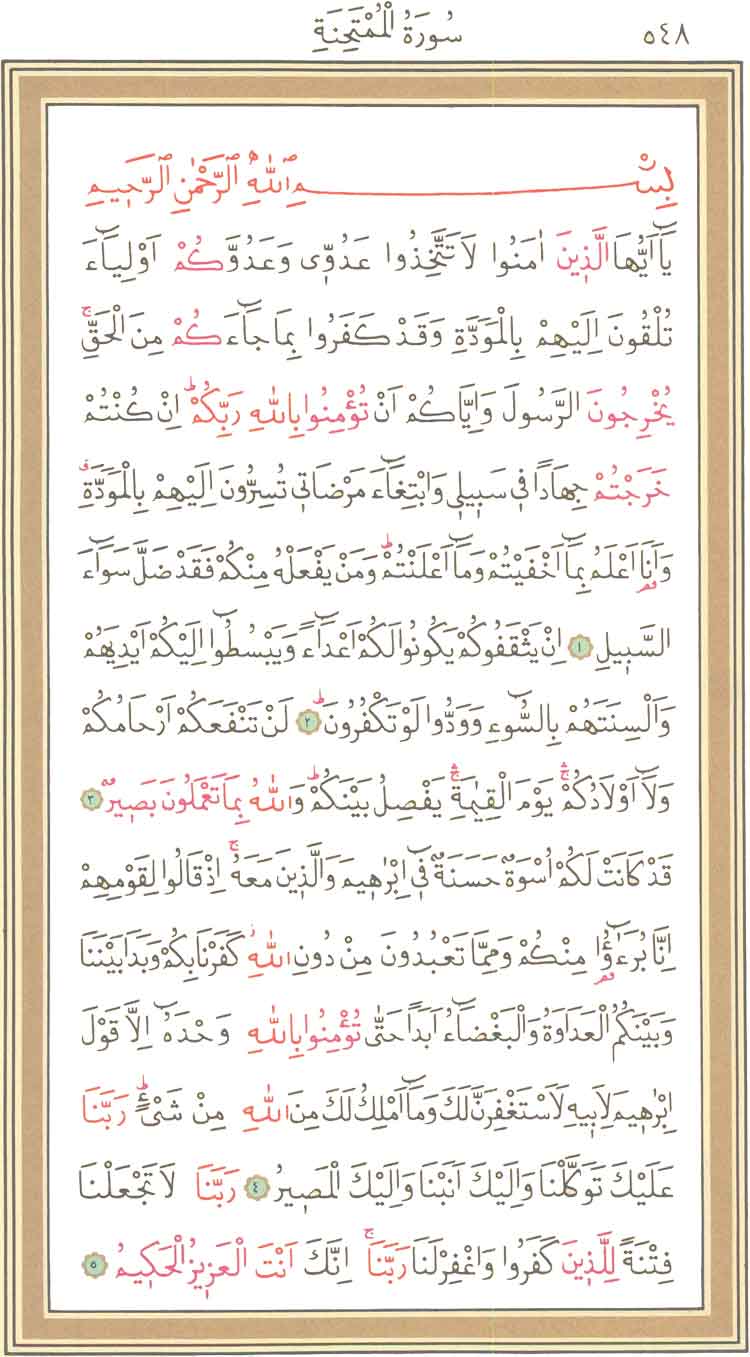 ٥٤٨ سُورَةُ الْمُمْتَحِنَةِ
بِسْمِ اللهِ الرَّحْمٰنِ الرَّحِيمِ
يَٓا اَيُّهَا الَّذِينَ اٰمَنُوا لَا تَتَّخِذُوا عَدُوِّى وَعَدُوَّكُمْ اَوْلِيَٓاءَ
تُلْقُونَ اِلَيْهِمْ بِالْمَوَدَّةِ وَقَدْ كَفَرُوا بِمَا جَٓاءَكُمْ مِنَ الْحَقِّۚ
يُخْرِجُونَ الرَّسُولَ وَاِيَّاكُمْ اَنْ تُؤْمِنُوا بِاللهِ رَبِّكُمْۜ اِنْ كُنْتُمْ
خَرَجْتُمْ جِهَادًا فِى سَبِيلِى وَابْتِغَٓاءَ مَرْضَاتِى تُسِرُّونَ اِلَيْهِمْ بِالْمَوَدَّةِۗ
وَاَنَا اَعْلَمُ بِمَٓا اَخْفَيْتُمْ وَمَٓا اَعْلَنْتُمْۜ وَمَنْ يَفْعَلْهُ مِنْكُمْ فَقَدْ ضَلَّ سَوَٓاءَ
السَّبِيلِ ١ اِنْ يَثْقَفُوكُمْ يَكُونُوا لَكُمْ اَعْدَٓاءً وَيَبْسُطُٓوا اِلَيْكُمْ اَيْدِيَهُمْ
وَاَلْسِنَتَهُمْ بِالسُّٓوءِ وَوَدُّوا لَوْ تَكْفُرُونَۜ ٢ لَنْ تَنْفَعَكُمْ اَرْحَامُكُمْ
وَلَٓا اَوْلَادُكُمْۚ يَوْمَ الْقِيٰمَةِۚ يَفْصِلُ بَيْنَكُمْۜ وَاللهُ بِمَا تَعْمَلُونَ بَصِيرٌ ٣
قَدْ كَانَتْ لَكُمْ اُسْوَةٌ حَسَنَةٌ فِٓى اِبْرٰهِيمَ وَالَّذِينَ مَعَهُۚ اِذْ قَالُوا لِقَوْمِهِمْ
اِنَّا بُرَءٰٓؤُا مِنْكُمْ وَمِمَّا تَعْبُدُونَ مِنْ دُونِ اللهِۘ كَفَرْنَا بِكُمْ وَبَدَا بَيْنَنَا
وَبَيْنَكُمُ الْعَدَاوَةُ وَالْبَغْضَٓاءُ اَبَدًا حَتّٰى تُؤْمِنُوا بِاللهِ وَحْدَهُٓ اِلَّا قَوْلَ
اِبْرٰهِيمَ لِاَبِيهِ لَاَسْتَغْفِرَنَّ لَكَ وَمَٓا اَمْلِكُ لَكَ مِنَ اللهِ مِنْ شَىْءٍۜ رَبَّنَا
عَلَيْكَ تَوَكَّلْنَا وَاِلَيْكَ اَنَبْنَا وَاِلَيْكَ الْمَصِيرُ ٤ رَبَّنَا لَا تَجْعَلْنَا
فِتْنَةً لِلَّذِينَ كَفَرُوا وَاغْفِرْ لَنَا رَبَّنَاۚ اِنَّكَ اَنْتَ الْعَزِيزُ الْحَكِيمُ ٥